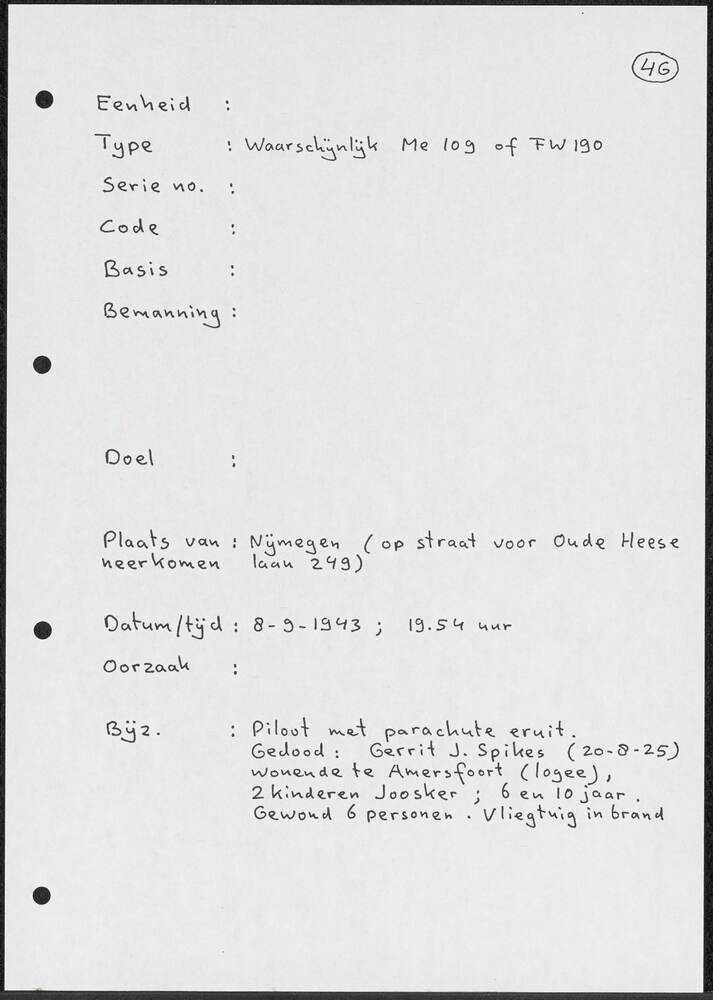 4G
Eenheid :
Type : Waarschijnlijk Me 109 of FW 190
Serie no. :
Code :
Basis :
Bemanning :
Doel :
Plaats van : Nijmegen (op straat voor Oude Heese
neerkomen laan 249)
Datum/tijd : 8-9-1943 ; 19.54 uur
Oorzaak :
Bijz. : Piloot met parachute eruit.
Gedood : Gerrit J. Spikes (20-8-25)
wonende te Amersfoort (logee),
2 kinderen Joosker ; 6 en 10 jaar.
Gewond 6 personen. Vliegtuig in brand